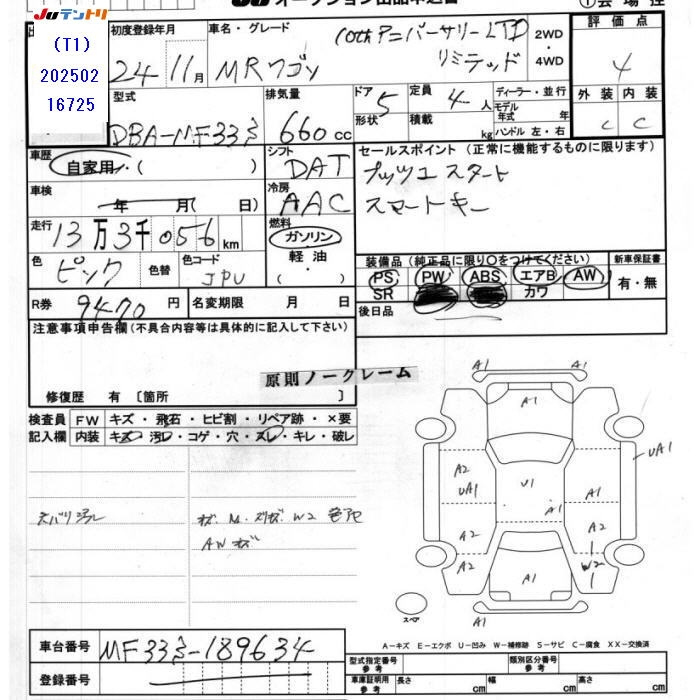 JUテントリ
オークション出品申込書
①会場控
(T1)
202502
16725
初度登録年月 車名・グレード
24 11月 MRワゴン
10thアニバーサリーLTD
リミテッド
2WD
・
4WD
評価点
4
外装 内装
C C
型式 排気量 ドア 形状 5 定員 4人 積載 kg
DBA-MF33S 660cc
ディーラー・並行
モデル年式 年
ハンドル 左・右
車歴
自家用・( )
シフト
DAT
セールスポイント(正常に機能するものに限ります)
プッシュスタート
スマートキー
車検 年 月( 日)
冷房
AAC
走行 13万3千056km
燃料
ガソリン
軽油
・( )
色 ピンク 色替 色コード JPU
装備品(純正品に限り○をつけてください)
PS PW ABS エアB AW
SR カワ
新車保証書
有・無
R券 9470円 名変期限 月 日
後日品
注意事項申告欄(不具合内容等は具体的に記入して下さい)
原則ノークレーム
修復歴 有〔箇所 〕
検査員 FW キズ・飛石・ヒビ割・リペア跡・×要
記入欄 内装 キズ・汚レ・コゲ・穴・スレ・キレ・破レ
AWキズ
A1
A1
A1
A2
UA1
V1
A1
A1
UA1
A2
A2
A2
W2
A1
A1
スペア
A-キズ E-エクボ U-凹み W-補修跡 S-サビ C-腐食 XX-交換済
車台番号 MF33S-189634
登録番号
型式指定番号 参考 類別区分番号 参考
車庫証明用 参考 長さ cm 幅 cm 高さ cm